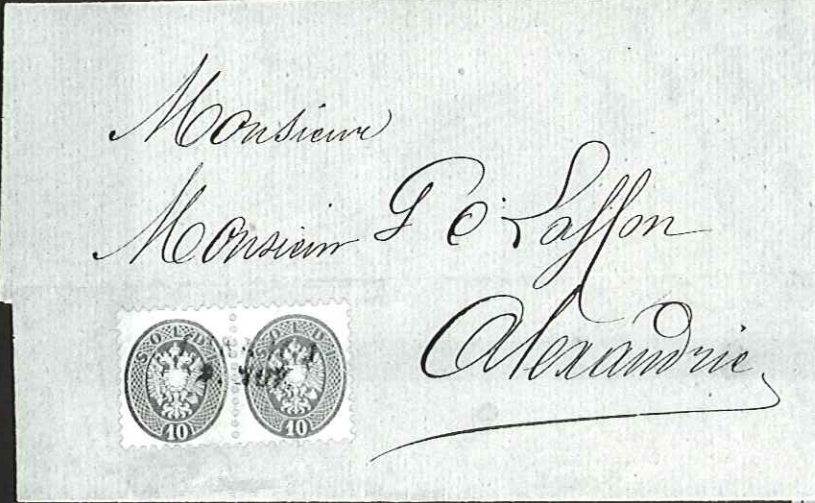 Monsieur
Monsieur G C Laffon
Alexandrie
SOLDI SOLDI
10 10